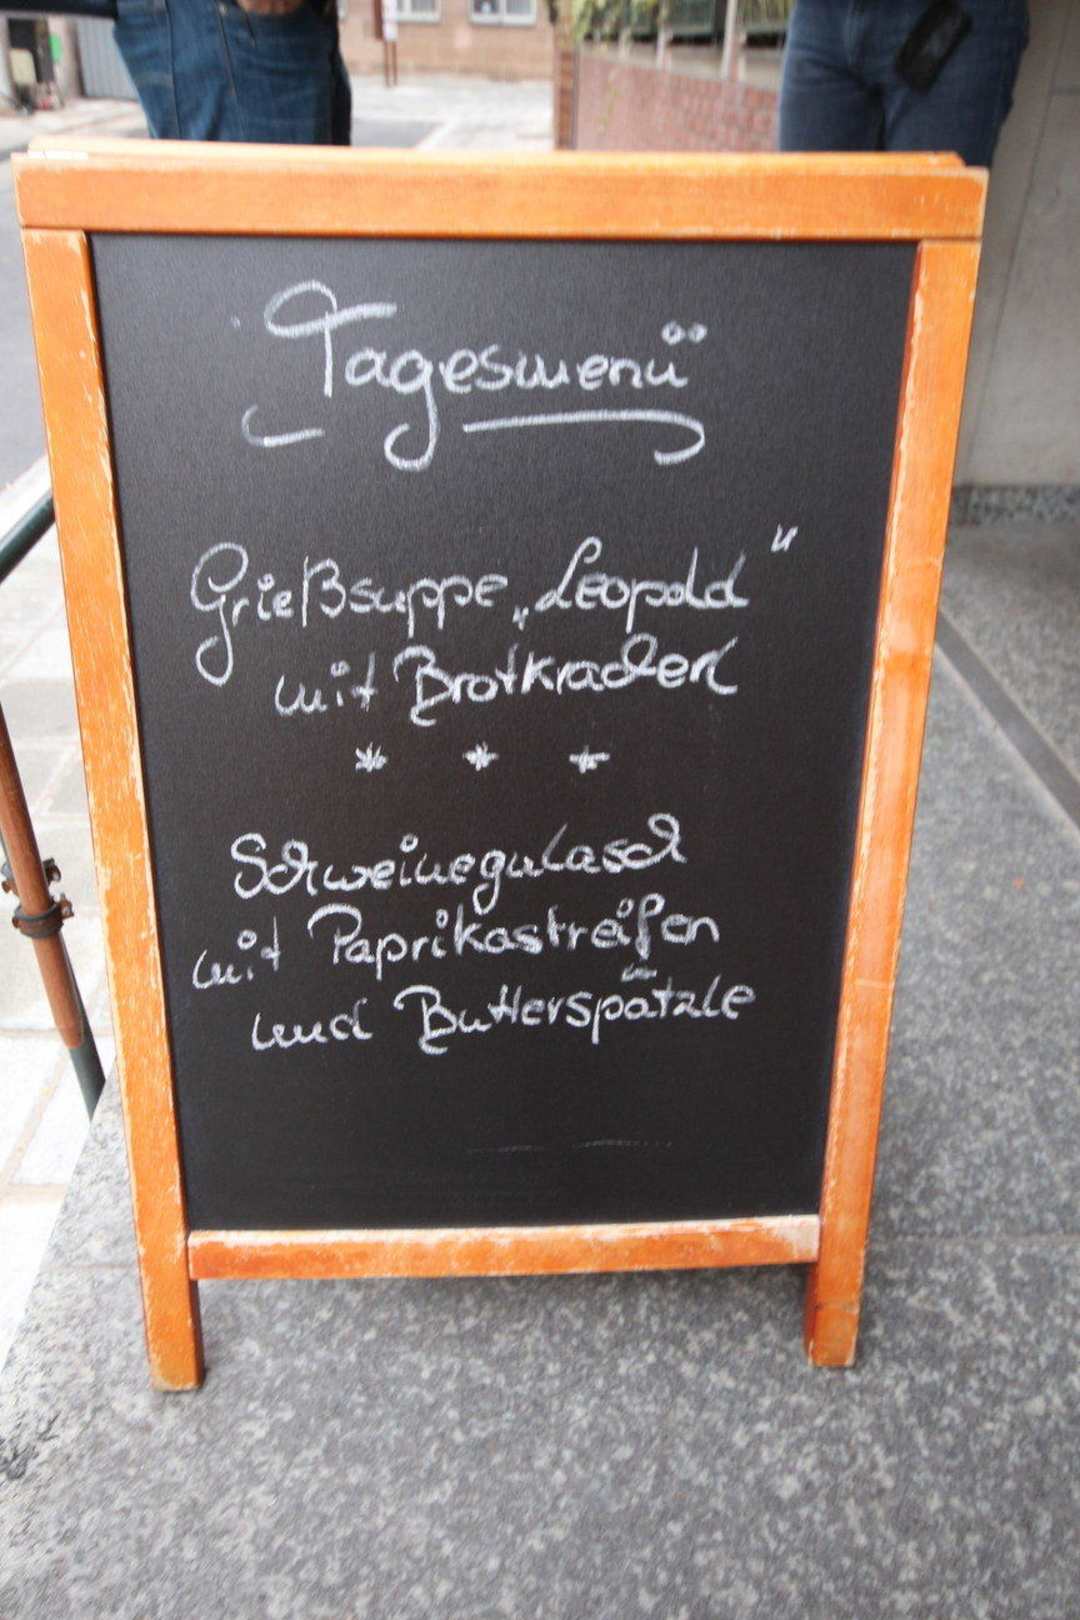 Tagesmenü
Grießsuppe „Leopold“
mit Brotkracherl
* * *
Schweinegulasch
mit Paprikastreifen
und Butterspätzle